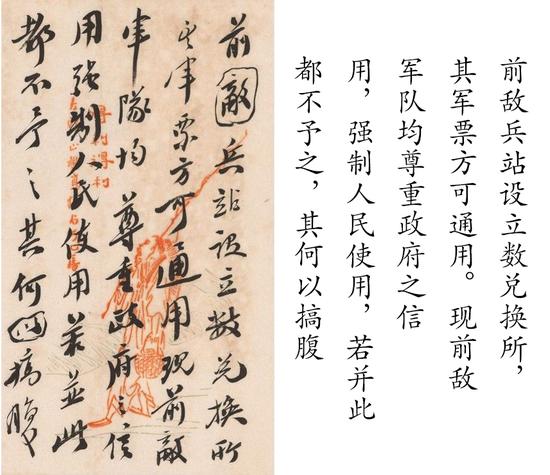 前敵兵站設立數兑換所
其軍票方可通用現前敵
軍隊均尊重政府之信
用强制人民使用若並此
都不予之其何以搞腹
前敌兵站设立数兑换所，
其军票方可通用。现前敌
军队均尊重政府之信
用，强制人民使用，若并此
都不予之，其何以搞腹